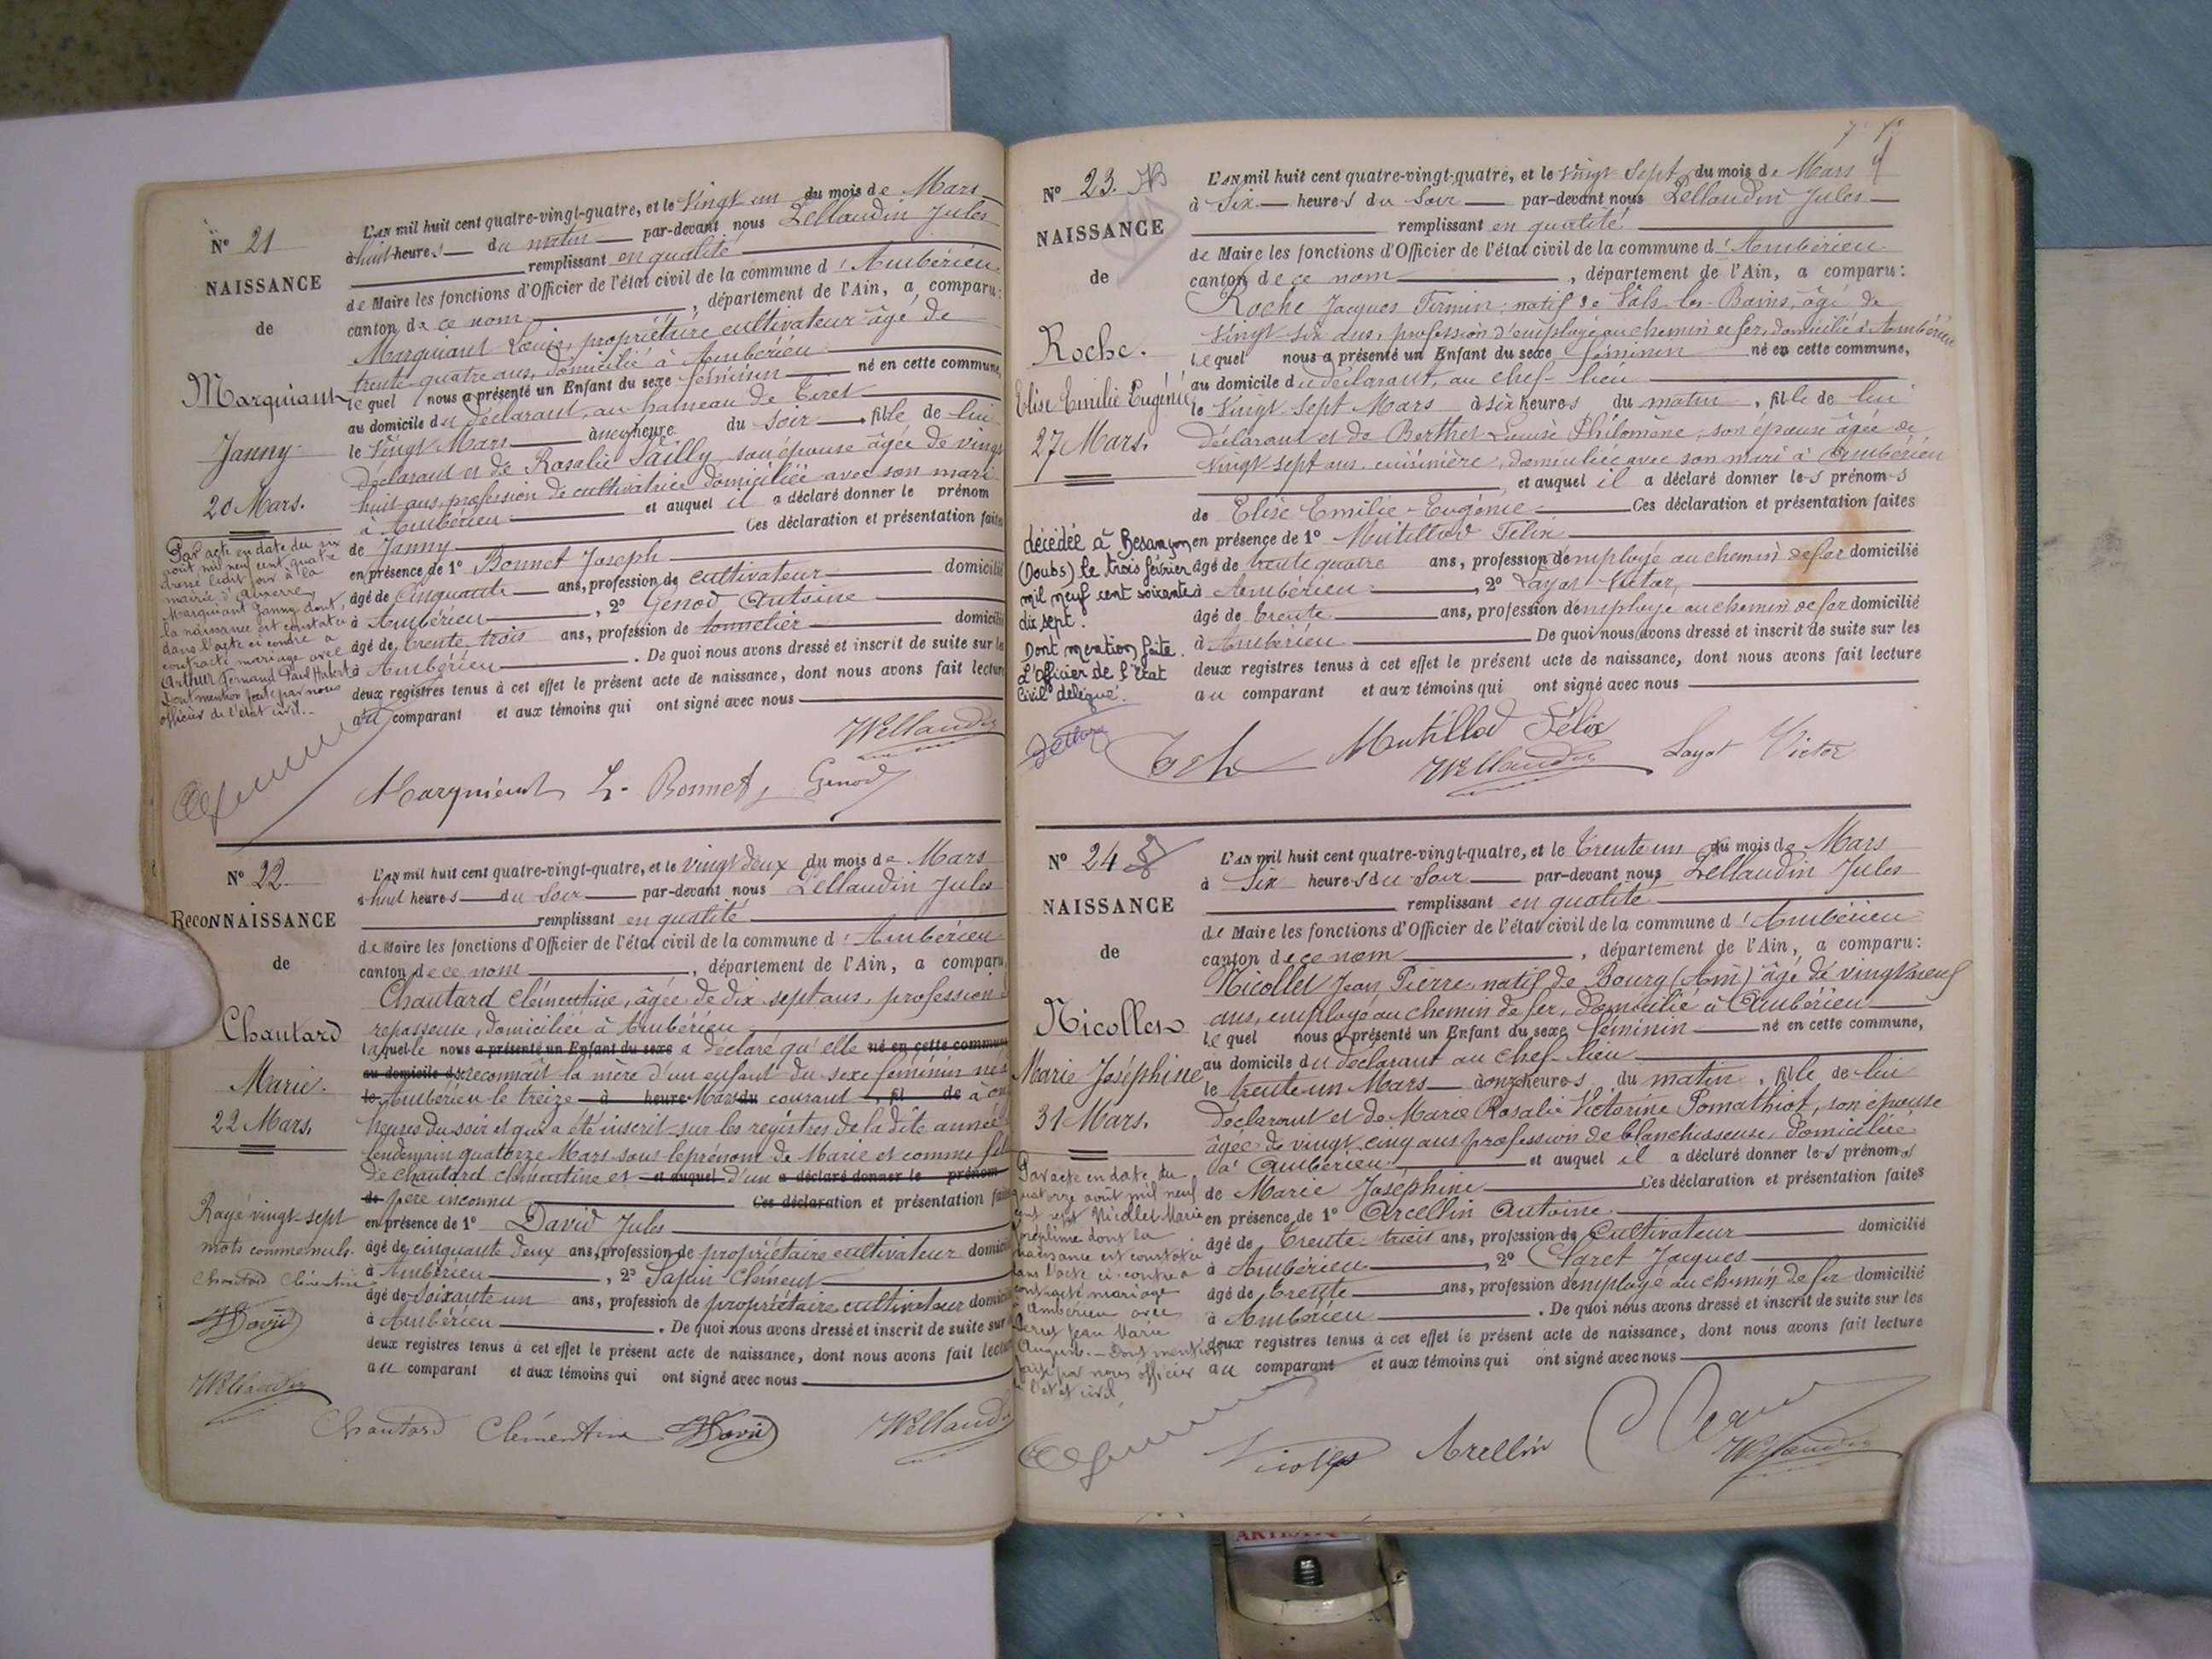 N° 21
NAISSANCE
de
Marquiant
Janny
20 Mars.
Par acte en date du six
août mil neuf cent quatre
dressé ledit jour à la
mairie d'Auxerre,
Marquiant Janny dont
la naissance est constatée
dans l'acte ci contre a
contracté mariage avec
Arthur Fernand Paul Habert
dont mention faite par nous
officier de l'état civil.
L'AN mil huit cent quatre-vingt-quatre, et le Vingt un du mois de Mars
à huit heures du matin par-devant nous Pellaudin Jules
remplissant en qualité
de Maire les fonctions d'Officier de l'état civil de la commune d'Ambérieu
canton de ce nom, département de l'Ain, a comparu:
Marquiant Louis, propriétaire cultivateur âgé de
trente-quatre ans, domicilié à Ambérieu
lequel nous a présenté un Enfant du sexe féminin né en cette commune,
au domicile du déclarant, au hameau de Tiret
le Vingt Mars à heure du soir, fille de lui
déclarant et de Rosalie Sailly, son épouse âgée de vingt
huit ans, profession de cultivatrice domiciliée avec son mari
à Ambérieu et auquel il a déclaré donner le prénom
de Janny Ces déclaration et présentation faites
en présence de 1° Bonnet Joseph
âgé de Cinquante ans, profession de cultivateur domicilié
à Ambérieu, 2° Genod Antoine
âgé de trente trois ans, profession de tonnelier domicilié
à Ambérieu. De quoi nous avons dressé et inscrit de suite sur les
deux registres tenus à cet effet le présent acte de naissance, dont nous avons fait lecture
au comparant et aux témoins qui ont signé avec nous
Marquiant L. Bonnet Genod
N° 22
ReconNAISSANCE
de
Chautard
Marie.
22 Mars.
Rayé vingt-sept
mots comme nuls.
Chautard Clémentine
JDavid
L'AN mil huit cent quatre-vingt-quatre, et le vingt deux du mois de Mars
à huit heures du Soir par-devant nous Pellaudin Jules
remplissant en qualité
de Maire les fonctions d'Officier de l'état civil de la commune d'Ambérieu
canton de ce nom, département de l'Ain, a comparu
Chautard Clémentine, âgée de dix sept ans, profession de
repasseuse, domiciliée à Ambérieu
laquelle nous a présenté un Enfant du sexe a déclaré qu'elle né en cette commune
au domicile d reconnaît la mère d'un enfant du sexe féminin né à
le Ambérieu le treize à heure Mars du courant, fil de à onze
heures du soir et qui a été inscrit sur les registres de la dite année
lendemain quatorze Mars sous le prénom de Marie et comme fille
de Chautard Clémentine et et auquel d'un a déclaré donner le prénom
de père inconnu Ces déclaration et présentation faites
en présence de 1° David Jules
âgé de cinquante deux ans, profession de propriétaire cultivateur domicilié
à Ambérieu, 2° Sapin Clément
âgé de soixante un ans, profession de propriétaire cultivateur domicilié
à Ambérieu. De quoi nous avons dressé et inscrit de suite sur
deux registres tenus à cet effet le présent acte de naissance, dont nous avons fait lecture
au comparant et aux témoins qui ont signé avec nous
Chautard Clémentine JDavid
N° 23.
NAISSANCE
de
Roche.
Elise Emilie Eugénie
27 Mars.
décédée à Besançon
(Doubs) le trois février
mil neuf cent soixante
dix sept.
Dont mention faite.
L'Officier de l'Etat
Civil délégué.
L'AN mil huit cent quatre-vingt-quatre, et le Vingt Sept du mois de Mars
à Six heures du Soir par-devant nous Pellaudin Jules
remplissant en qualité
de Maire les fonctions d'Officier de l'état civil de la commune d'Ambérieu
canton de ce nom, département de l'Ain, a comparu:
Roche Jacques Firmin, natif de Vals-les-Bains, âgé de
Vingt six ans, profession d'employé au chemin de fer, domicilié à Ambérieu
lequel nous a présenté un Enfant du sexe féminin né en cette commune,
au domicile du déclarant, au chef-lieu
le Vingt Sept Mars à six heures du matin, fille de lui
déclarant et de Berthet Louise Philomène, son épouse âgée de
vingt-sept ans, cuisinière, domiciliée avec son mari à Ambérieu
et auquel il a déclaré donner les prénoms
de Elise Emilie-Eugénie Ces déclaration et présentation faites
en présence de 1° Mutillod Félix
âgé de trente quatre ans, profession d'employé au chemin de fer domicilié
à Ambérieu, 2° Layat Victor,
âgé de trente ans, profession d'employé au chemin de fer domicilié
à Ambérieu De quoi nous avons dressé et inscrit de suite sur les
deux registres tenus à cet effet le présent acte de naissance, dont nous avons fait lecture
au comparant et aux témoins qui ont signé avec nous
Mutillod Félix Layat Victor
N° 24
NAISSANCE
de
Nicollet
Marie Joséphine
31 Mars.
Par acte en date du
quatorze août mil neuf
cent sept Nicollet Marie
Joséphine dont la
naissance est constatée
dans l'acte ci-contre a
contracté mariage
à Ambérieu avec
Jean Marie
Auguste. — Dont mention
faite par nous officier
de l'état civil.
L'AN mil huit cent quatre-vingt-quatre, et le Trente un du mois de Mars
à Six heures du Soir par-devant nous Pellaudin Jules
remplissant en qualité
de Maire les fonctions d'Officier de l'état civil de la commune d'Ambérieu
canton de ce nom, département de l'Ain, a comparu:
Nicollet Jean Pierre natif de Bourg (Ain) âgé de vingt neuf
ans, employé au chemin de fer, domicilié à Ambérieu
lequel nous a présenté un Enfant du sexe féminin né en cette commune,
au domicile du déclarant au chef-lieu
le trente un Mars à onze heures du matin, fille de lui
déclarant et de Marie Rosalie Victorine Pomathiot, son épouse
âgée de vingt cinq ans profession de blanchisseuse, domiciliée
à Ambérieu, et auquel il a déclaré donner les prénoms
de Marie Joséphine Ces déclaration et présentation faites
en présence de 1° Arcellin Antoine
âgé de Trente-trois ans, profession de Cultivateur domicilié
à Ambérieu, 2° Claret Jacques
âgé de trente ans, profession d'employé au chemin de fer domicilié
à Ambérieu. De quoi nous avons dressé et inscrit de suite sur les
deux registres tenus à cet effet le présent acte de naissance, dont nous avons fait lecture
au comparant et aux témoins qui ont signé avec nous
Nicollet Arcellin